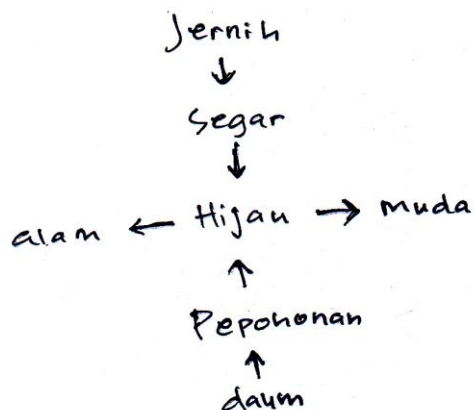 Jernih
Segar
alam Hijau muda
Pepohonan
daum